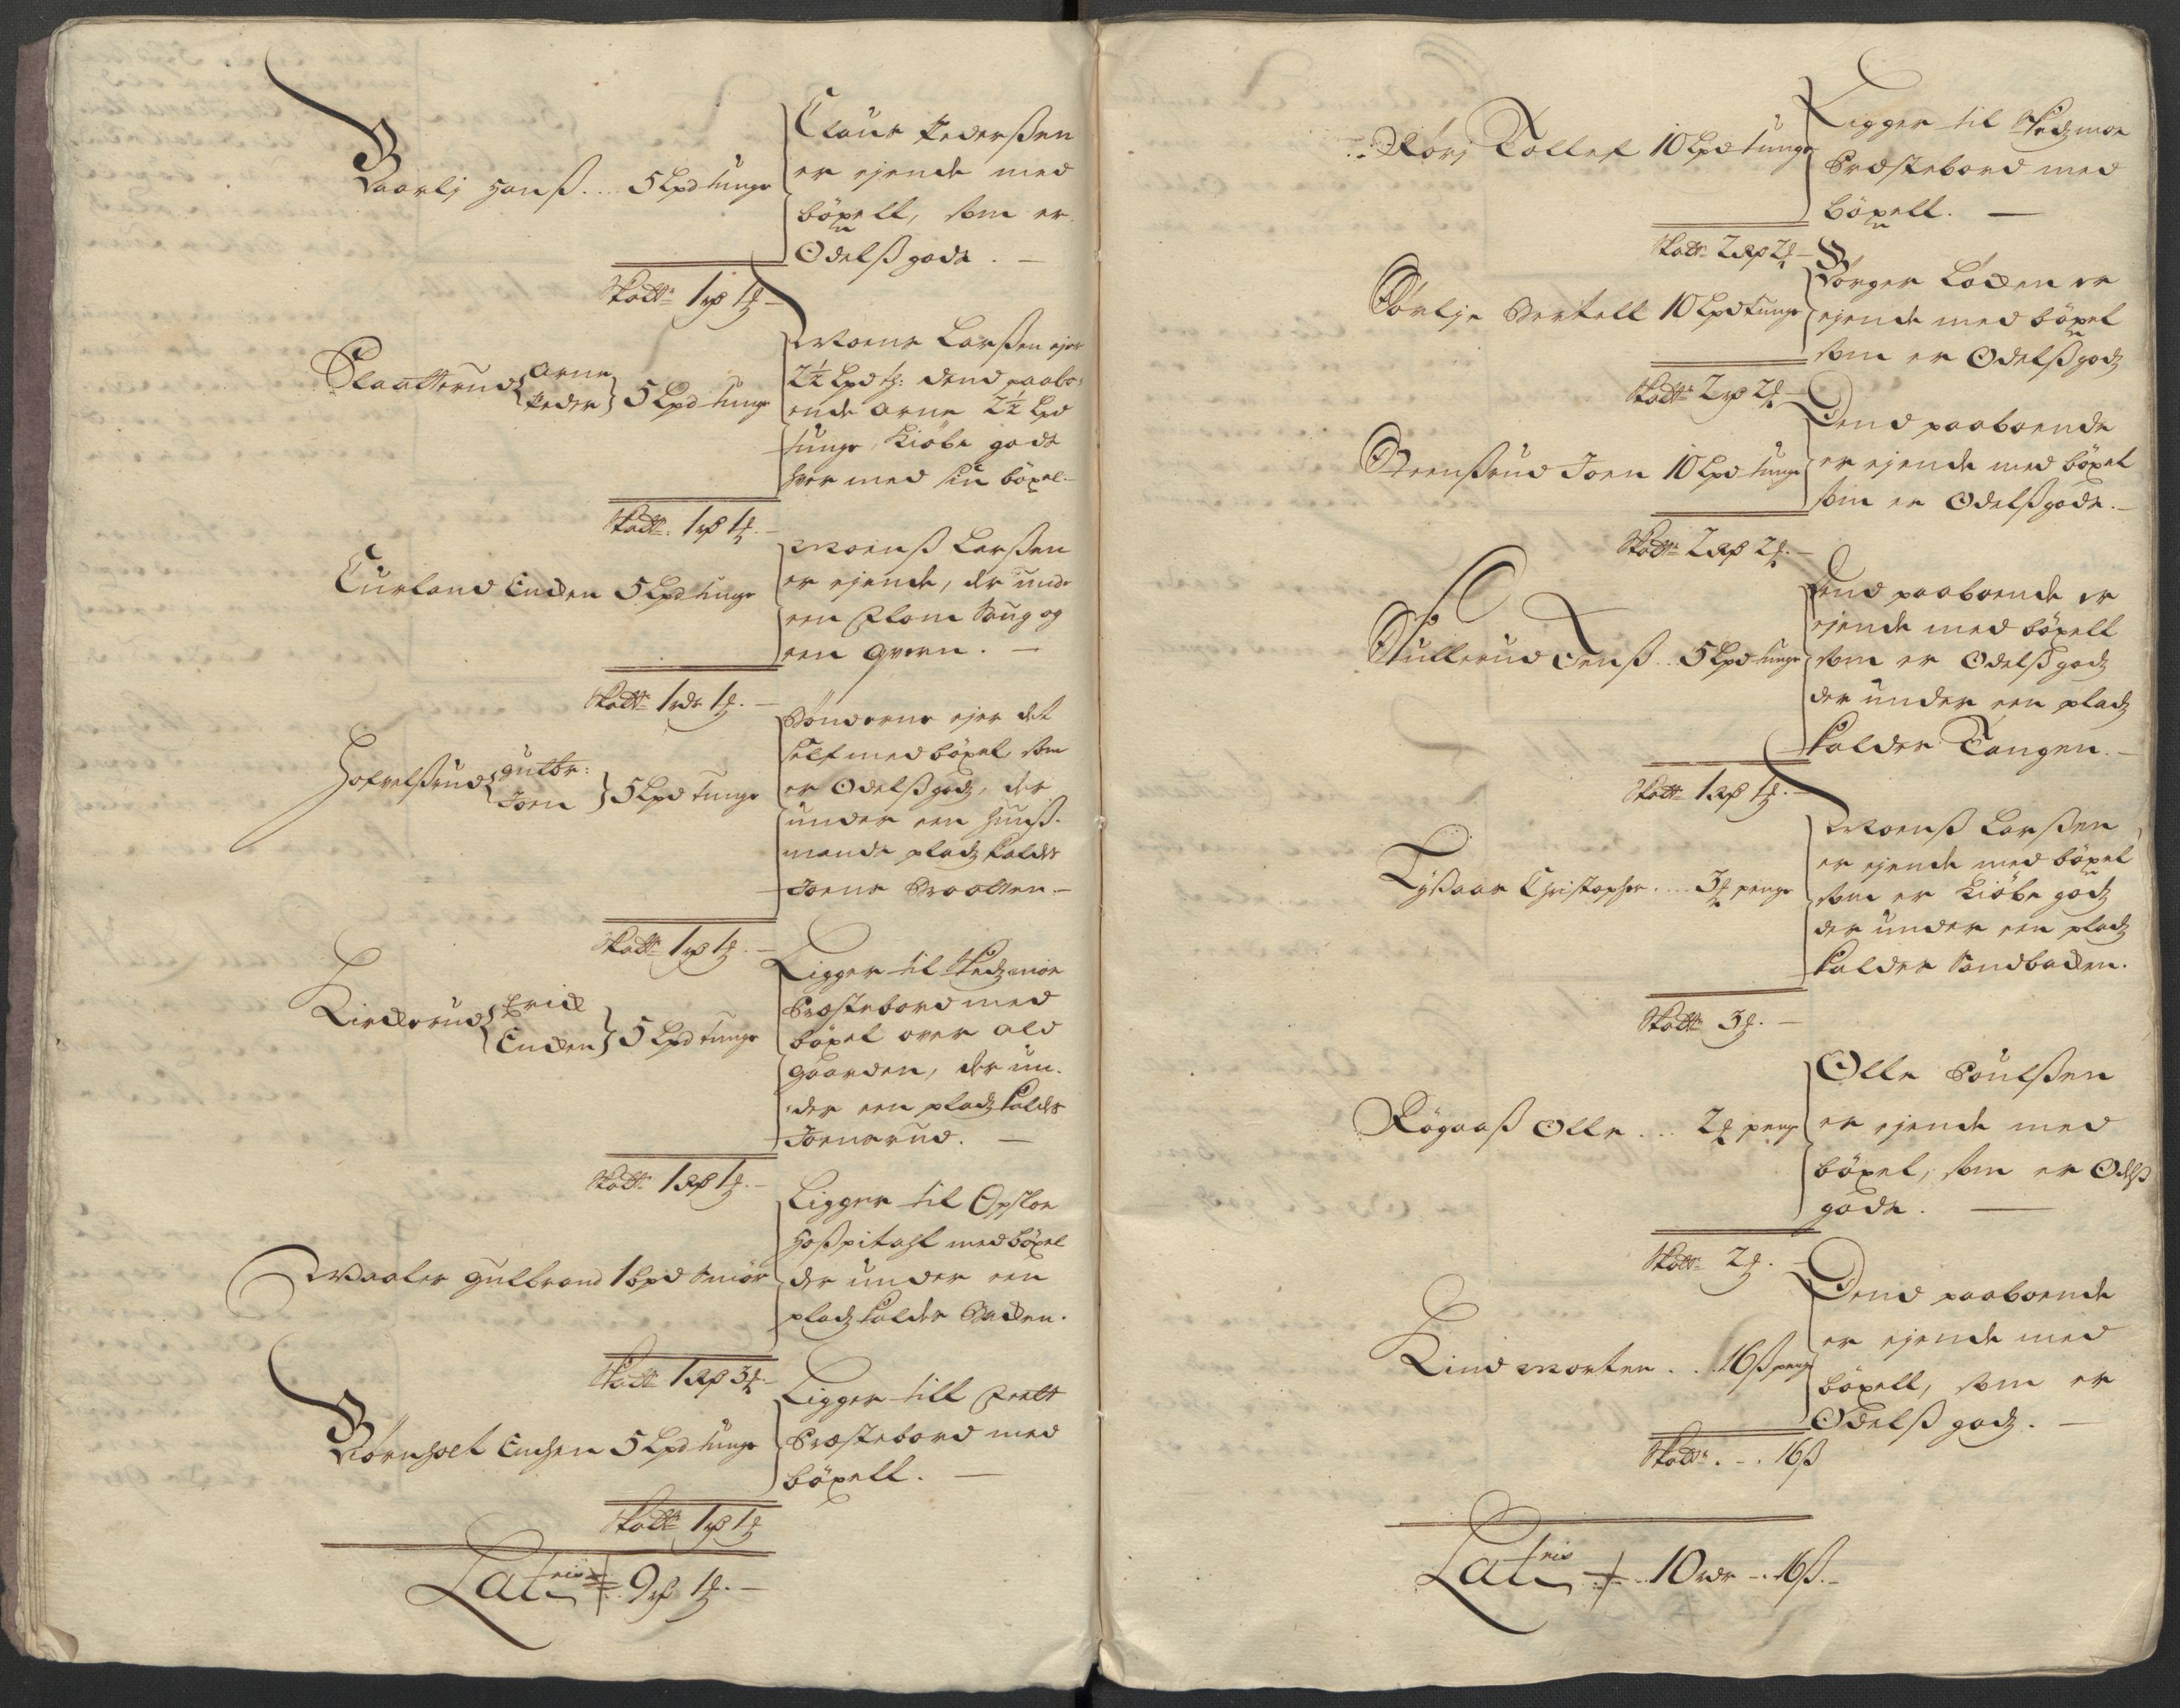 Baarli Hanß .... 5 Lpd tunge
Claus Pederßen
er ejende med
böxell, som er
Odelß gods. —
Skatt 1 rd 1 ℥ —
Slaatterud { Arne Peder } 5 Lpd tunge
Moens Larßen ejer
2½ Lpd t: dend paabo-
ende Arne 2½ Lpd
tunge, Kiöbe gods
hver med sin böxel. —
Skatt. 1 rd 1 ℥. —
Curland Encken 5 Lpd tunge
Moenß Larßen
er ejende, der under
een Flom Saug og
een Qvern. —
Skatt 1 rdr 1 ℥. —
{ Gulbr: Joen } 5 Lpd tunge
Bönderne ejer det
self med böxel, som
er Odelß gods, der
under een Huuß-
mands plads kaldes
Joens Braatten. —
Skatt 1 rd 1 ℥. —
Kirckerud { Erick Encken } 5 Lpd tunge
Ligger til Skedsmoe
Præstebord med
böxel over ald
gaarden, der un-
der een plads kaldes
Joensrud. —
Skatt 1 Rd 1 ℥. —
Waaler Gulbrand 1 Bpd Smör
Ligger til Opsloe
Hoßpitahl med böxel
der under een
plads kaldes Backen.
Skatt 1 Rd 3 ℥. —
Börnholt Enchen 5 Lpd tunge
Ligger till Feedt
Præstebord med
böxell. —
Skatt 1 rd 1 ℥
Lateris .. 9 rd 1 ℥. —
Tollef 10 Lpd tunge
Ligger til Skedsmoe
Præstebord med
böxell. —
Skatt 2 Rd 2 ℥ —
Bertell 10 Lpd tunge
Börger Locken er
ejende med böxel
som er Odelß gods
Skatt 2 rd 2 ℥ —
Steenßrud Joen 10 Lpd tunge
Dend paaboende
er ejende med böxel
som er Odelß gods. —
Skatt 2 Rd 2 ℥. —
Skullerud Jenß .. 5 Lpd tunge
Dend paaboende er
ejende med böxell
som er Odelß gods
der under een plads
kalder Tangen. —
Skatt 1 Rd 1 ℥. —
Christopher .... 3 ℥ penge
Moenß Larßen
er ejende med böxel
som er Kiöbe gods
der under een plads
kaldes Sandbacken.
Skatt 3 ℥. —
Rögaaß Olle ... 2 ℥ penge
Olle Poulßen
er ejende med
böxel, som er Odelß
gods. —
Skatt 2 ℥. —
Lind Morten .. 16 ß penge
Dend paaboende
er ejende med
böxell, som er
Odelß gods. —
Skatt. .. 16 ß
Lateris .. 10 rdr — .. 16 ß. —